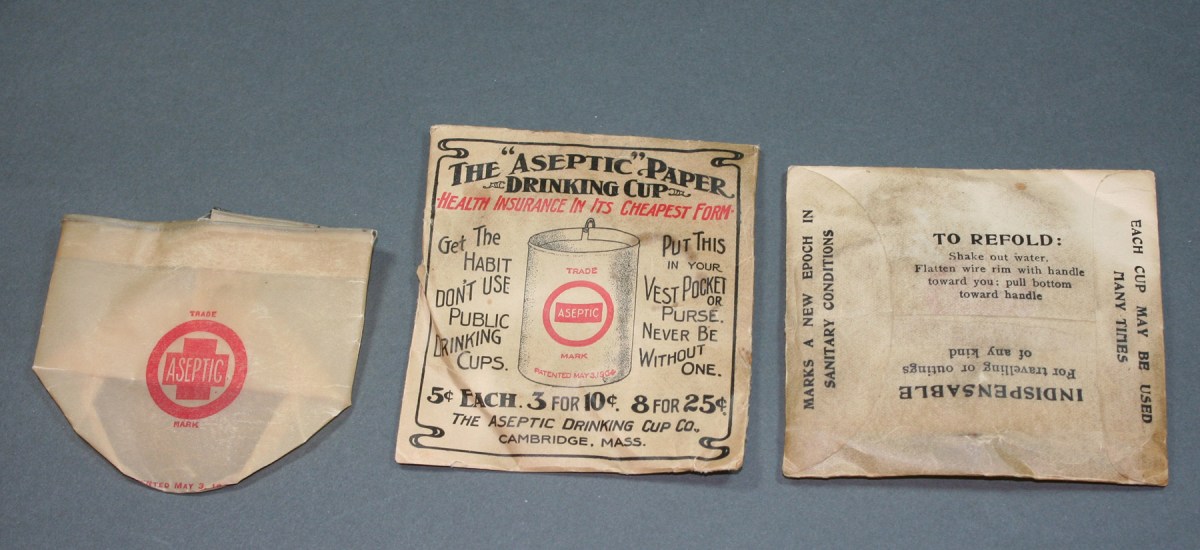 TRADE
ASEPTIC
MARK
MAY 3,
THE "ASEPTIC" PAPER
DRINKING CUP
HEALTH INSURANCE IN ITS CHEAPEST FORM
Get The
HABIT
DON'T USE
PUBLIC
DRINKING
CUPS.
TRADE
ASEPTIC
MARK
PATENTED MAY 3, 1904
PUT THIS
IN YOUR
VEST POCKET
OR
PURSE.
NEVER BE
WITHOUT
ONE.
5¢ EACH. 3 FOR 10¢. 8 FOR 25¢.
THE ASEPTIC DRINKING CUP CO.,
CAMBRIDGE, MASS.
MARKS A NEW EPOCH IN
SANITARY CONDITIONS
TO REFOLD:
Shake out water.
Flatten wire rim with handle
toward you; pull bottom
toward handle
INDISPENSABLE
For travelling or outings
of any kind
EACH CUP MAY BE USED
MANY TIMES